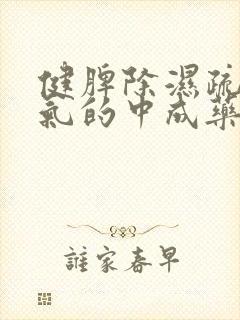 健脾除濕疏
氣的中成藥
誰家春早